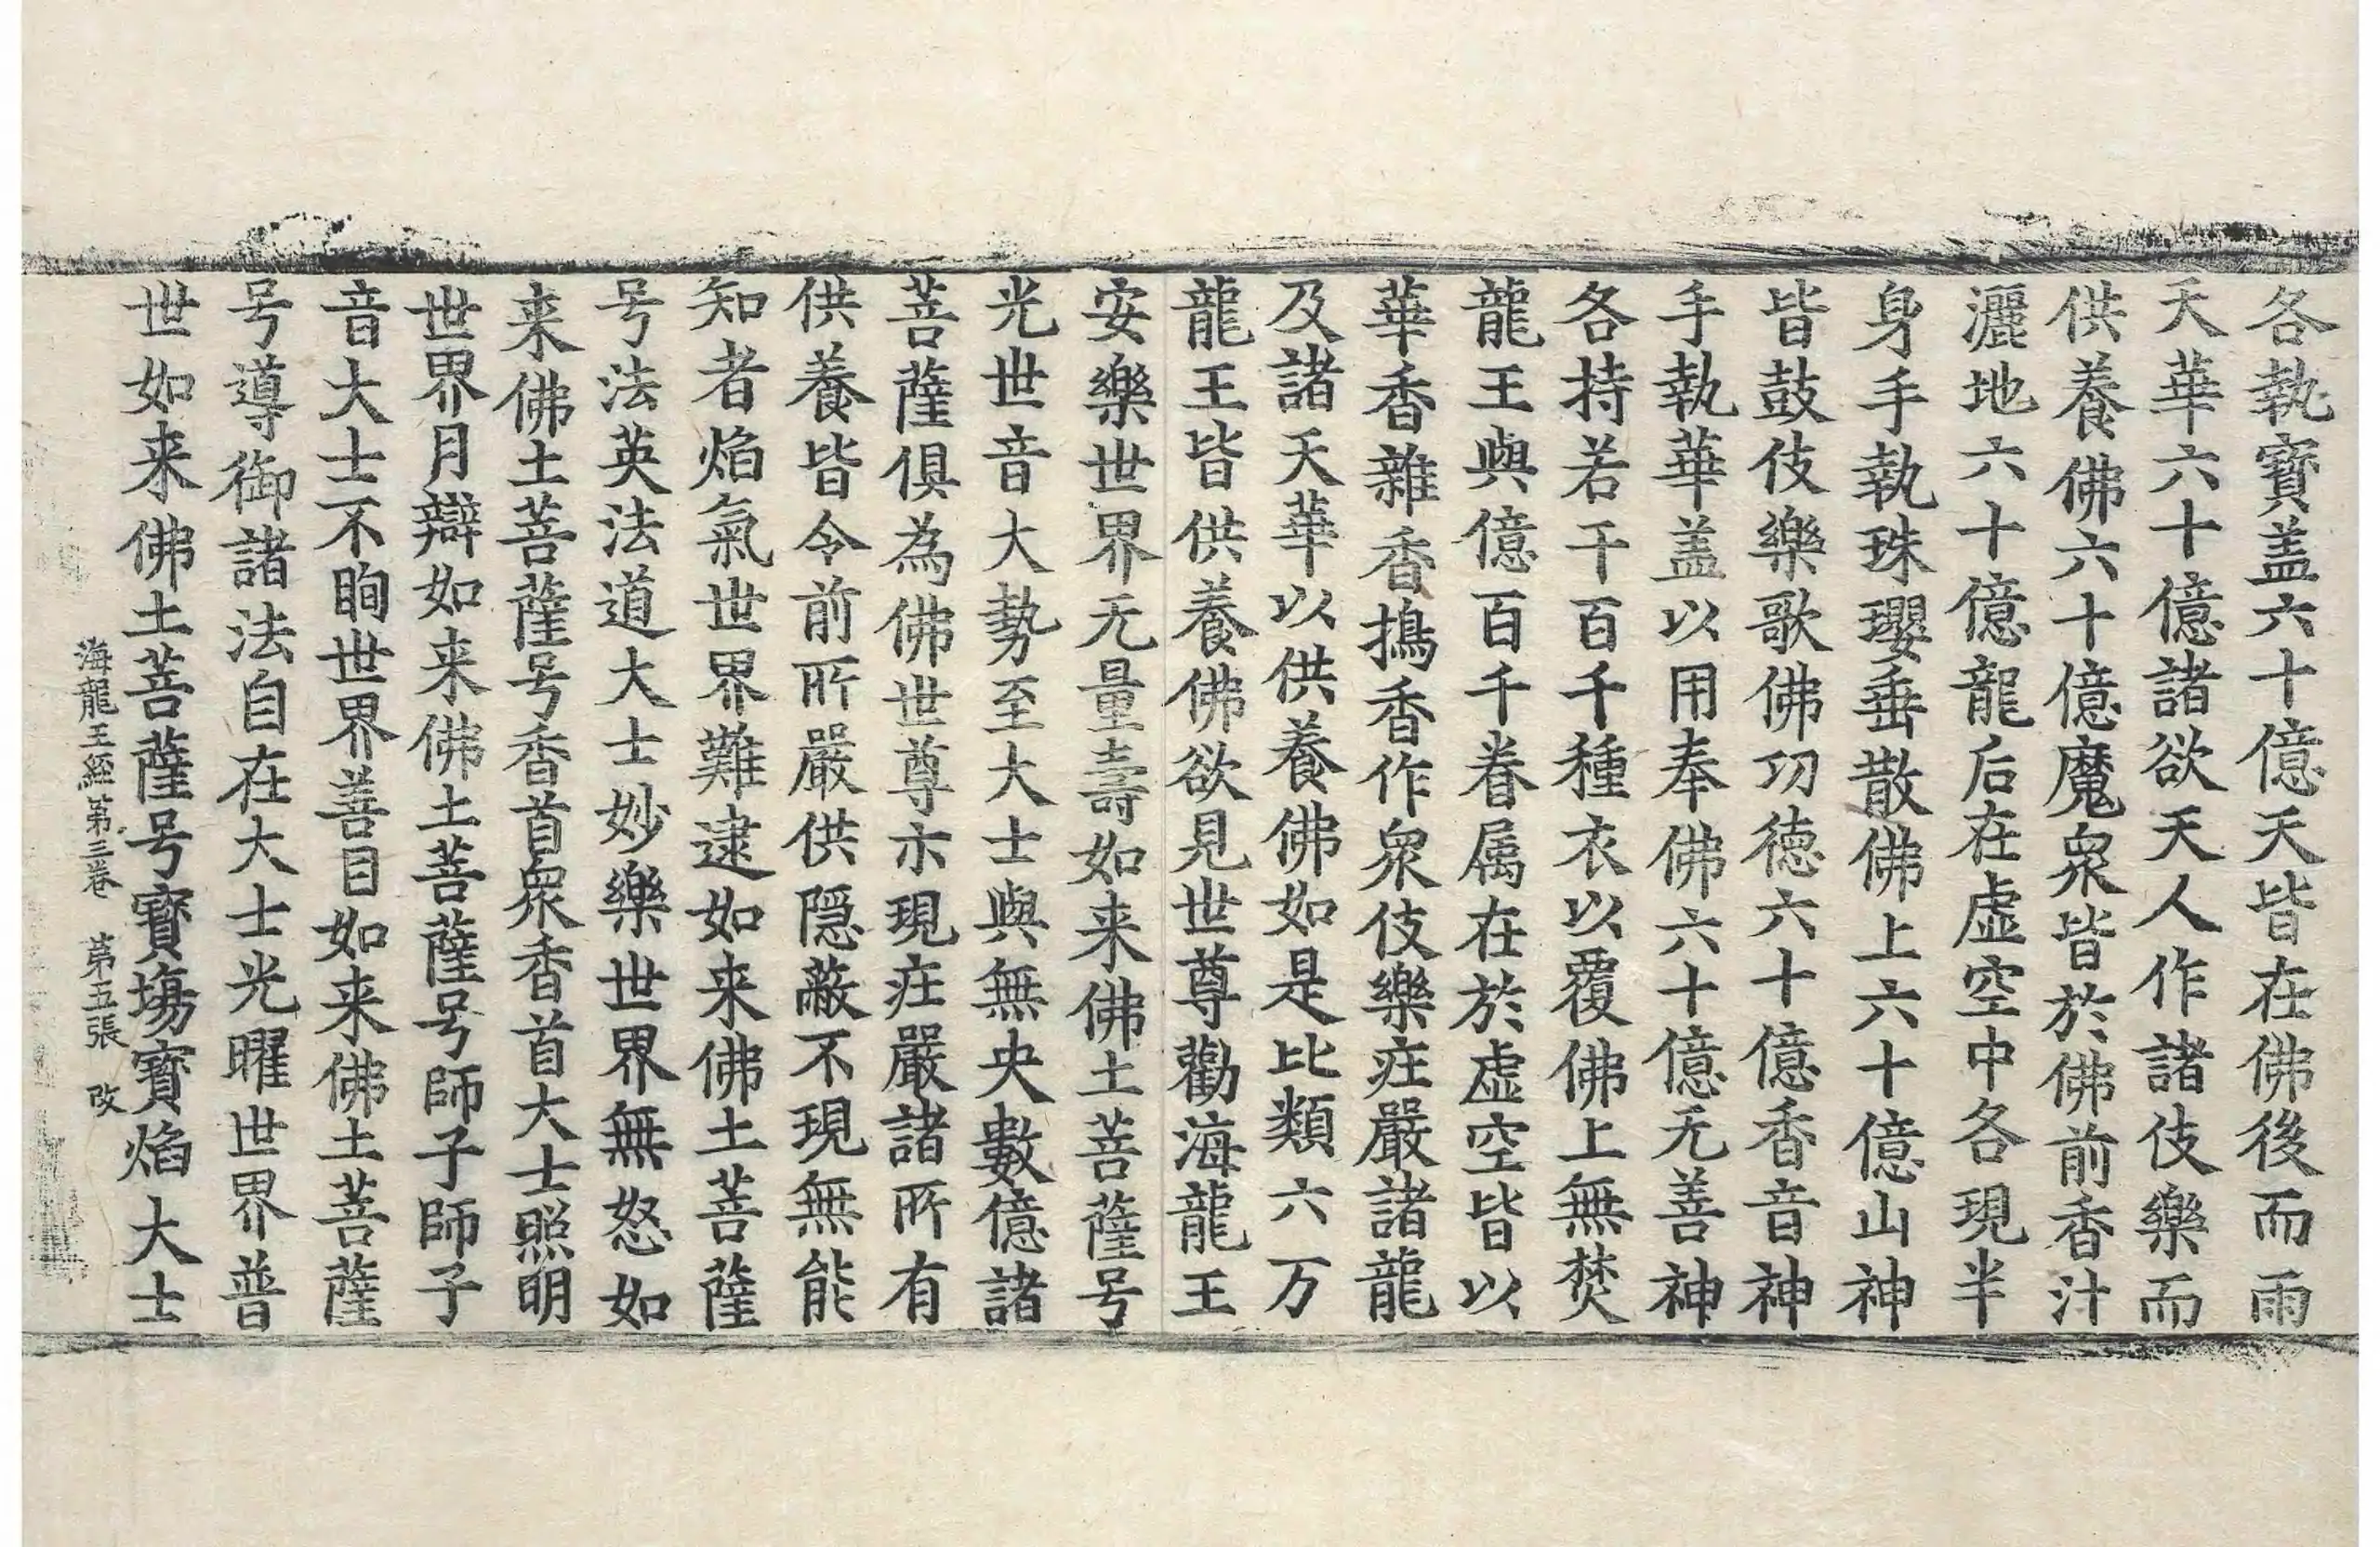 各執寶盖六十億天皆在佛後而雨
天華六十億諸欲天人作諸伎樂而
供養佛六十億魔衆皆於佛前香汁
灑地六十億龍后在虚空中各現半
身手執珠瓔垂散佛上六十億山神
皆鼓伎樂歌佛功德六十億香音神
手執華盖以用奉佛六十億无善神
各持若干百千種衣以覆佛上無焚
龍王與億百千眷属在於虚空皆以
華香雜香擣香作衆伎樂庄嚴諸龍
及諸天華以供養佛如是比類六万
龍王皆供養佛欲見世尊勸海龍王
安樂世界无量壽如来佛土菩薩号
光世音大勢至大士與無央數億諸
菩薩俱為佛世尊示現庄嚴諸所有
供養皆令前所嚴供隱蔽不現無能
知者焰氣世界難逮如来佛土菩薩
号法英法道大士妙樂世界無怒如
来佛土菩薩号香首衆香首大士照明
世界月辯如来佛土菩薩号師子師子
音大士不眴世界善目如来佛土菩薩
号導御諸法自在大士光曜世界普
世如来佛土菩薩号寶場寶焰大士
海龍王經第三卷 第五張 改